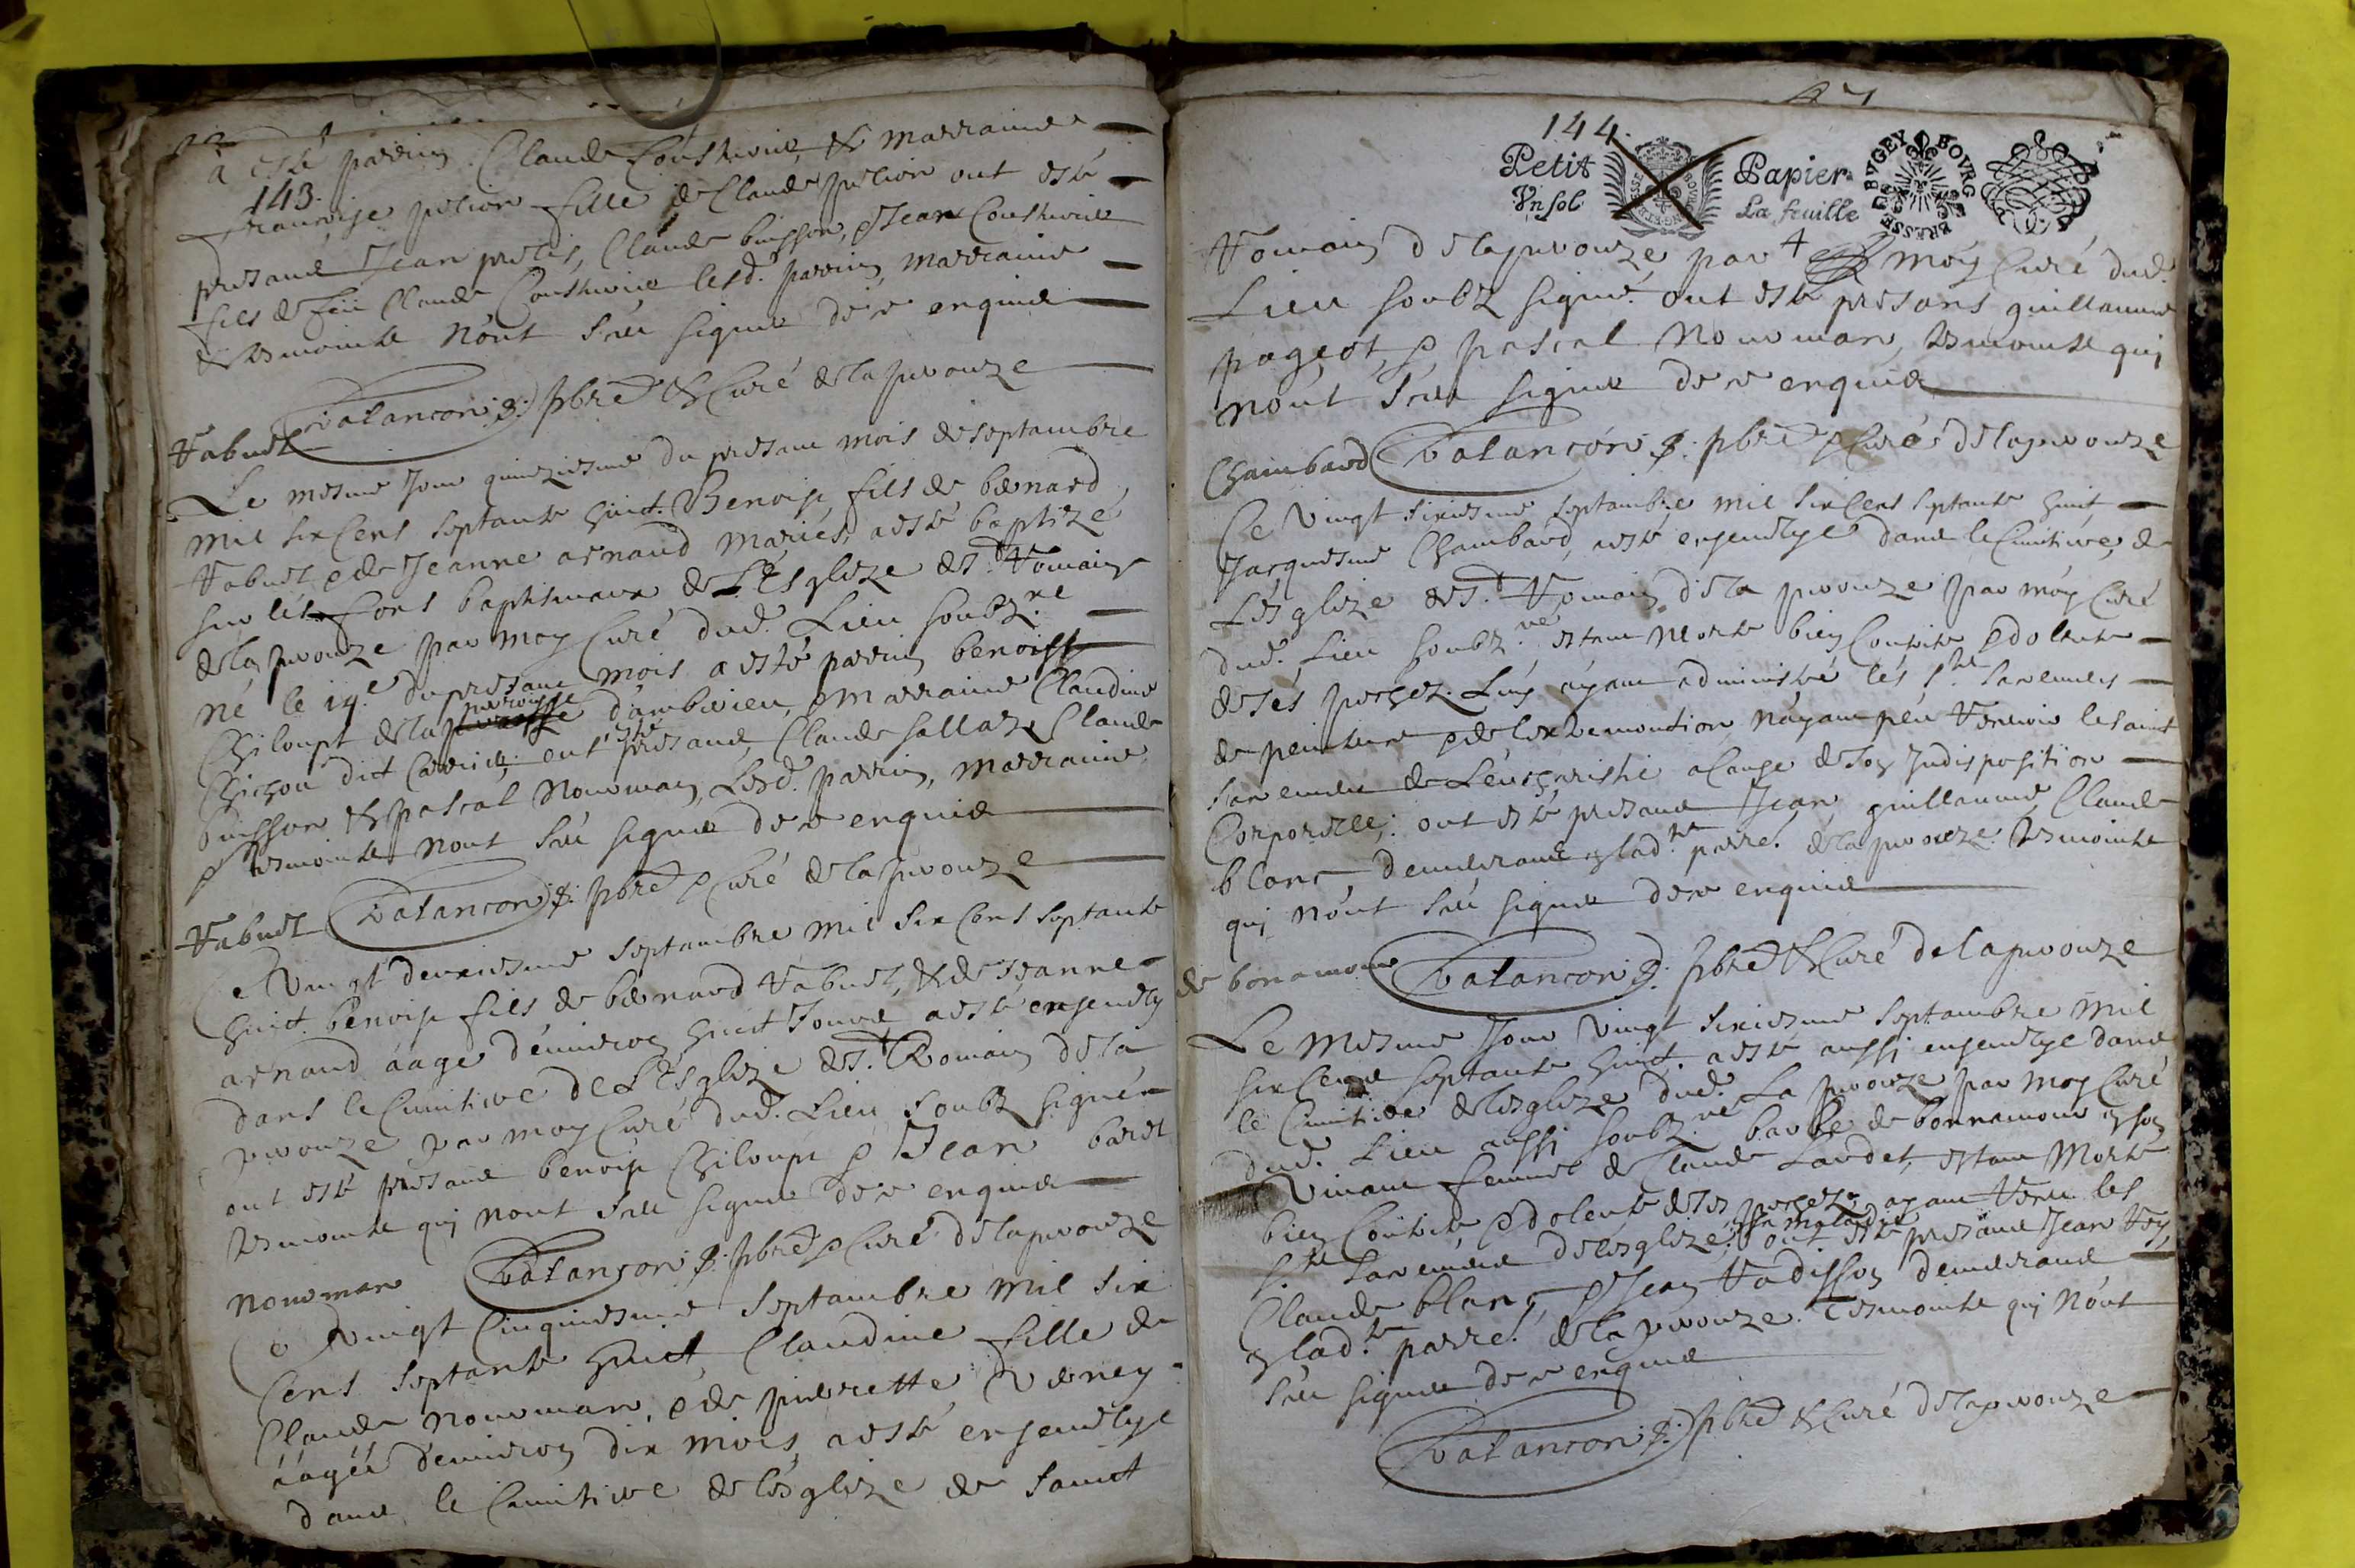 a esté parrin Claude Cousturier, & marraine
143.
francoise fille de Claude ont esté
presans Jean Claude buisson, & Jean Cousturier
fils de feu Claude Cousturier lesd. parrin, marraine
& tesmoints n'ont sceu signer de ce enquis
Balancon pbre & Curé de la perouze
Rabuel
Le mesme Jour quinziesme du presant mois de septambre
mil six Cens septante huict. Benoist fils de bernard
Rabuel, & de Jeanne arnaud mariés, a esté baptizé
sur lés fons baptismaux de L'Esglize de St. Romain
de la perouze par moy Curé dud. Lieu soubz.né
né le 14e. du presant mois a esté parrin benoist
Chiloupt de la perousse d'ambérieu, & marraine Claudine
dict ont esté presans, Claude sallaz, Claude
buisson & pascal Nourman, Lesd. parrin, marraine,
& tesmoints nont sceu signer de ce enquis
Rabuel Balancon pbre & Curé de la perouze
Ce Vingt deuxiesme septambre mil six Cens septante
huict. benoist fils de bernard Rabuel, & de Jeanne
arnaud aagé d'environ huict Jours a esté ensevely
dans le Cimitire de L'Esglize de St. Romain de la
perouze par moy Curé dud. Lieu soubz signé
ont esté presans benoist Chiloupt & Jean baret
tesmoints qui nont sceu signer de ce enquis
Nourman Balancon pbre & Curé de la perouze
Ce Vingt Cinquiesme Septambre mil six
Cens septante huict, Claudine fille de
Claude Nourman, & de pierrette Verney
aagée d'environ dix mois, a esté ensevelye
dans le Cimitire de lésglize de sainct
144.
Petit Papier
Vn sol La feuille
BRESSE BOURG
BVGEY BOVRG BRESSE
Romain de la perouze, par moy Curé dud.
Lieu soubz signé. ont esté presans guillaume
pageot, & pascal Nourman, tesmoints qui
n'ont sceu signer de ce enquis
Chambard Balancon pbre & Curé de la perouze
Ce Vingt sixiesme septambre mil six Cens septante huict
Jacquesme Chambard, a esté ensevelye dans le Cimitire, de
Lésglize de St. Romain de la perouze par moy Curé
dud. Lieu soubz.né estant Morte bien Contrite & dolente
de ses pechez. Luy ayant administré lés Sts. Sacremens
de penitence & de lextremontion n'ayant peu Recevoir le saint
sacrement de Leucharistie a Cause de son Indisposition
Corporelle: ont esté presans Jean guillaume, Claude
blanc, demeurans en lad.te parre. de la perouze. tesmoints
qui n'ont sceu signer de ce enquis
de bonamour Balancon pbre & Curé de la perouze
Le Mesme Jour Vingt sixiesme septambre mil
six Cens septante huict. a esté aussi ensevelye dans
le Cimitire de lésglize dud. La perouze par moy Curé
dud. Lieu aussi soubz.né barbe de bonnamour en son
Vivant femme de Claude Lardet, estant Morte
bien Contrite & dolente de ses pechez, ayant Receu les
Sts. Sacremens de lésglize en sa maladie ont esté presans Jean Rey,
Claude blanc & Jean Radisson demeurans
en lad.te parre. de la perouze. Tesmoints qui n'ont
sceu signer de ce enquis
Balancon pbre & Curé de la perouze